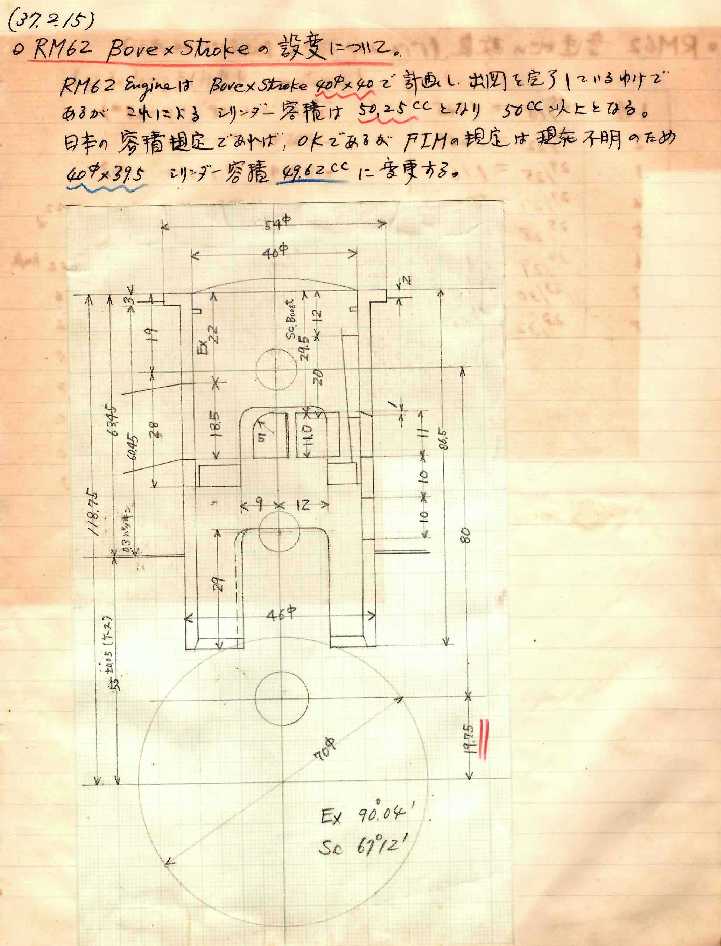 (37.2.15)
○ RM62 Bore×Strokeの設変について。
RM62 Engineは Bore×Stroke 40φ×40で計画し、出図を完了しているわけで
あるが これによる シリンダー容積は 50,25ccとなり 50cc以上となる。
日本の容積規定であれば、OKであるが FIMの規定は現在不明のため
40φ×39.5 シリンダー容積 49.62ccに変更する。
54φ
40φ
3
2
19
Ex 22
Sc. Boost
12
29.5
20
63.45
60.45
28
18.5
5
11.0
1
11
86.5
118.75
10
9
12
10
80
0.3パッキン
29
46φ
55±0.05 (ケース)
70φ
19.75
Ex 90°.04'
Sc 67°12'